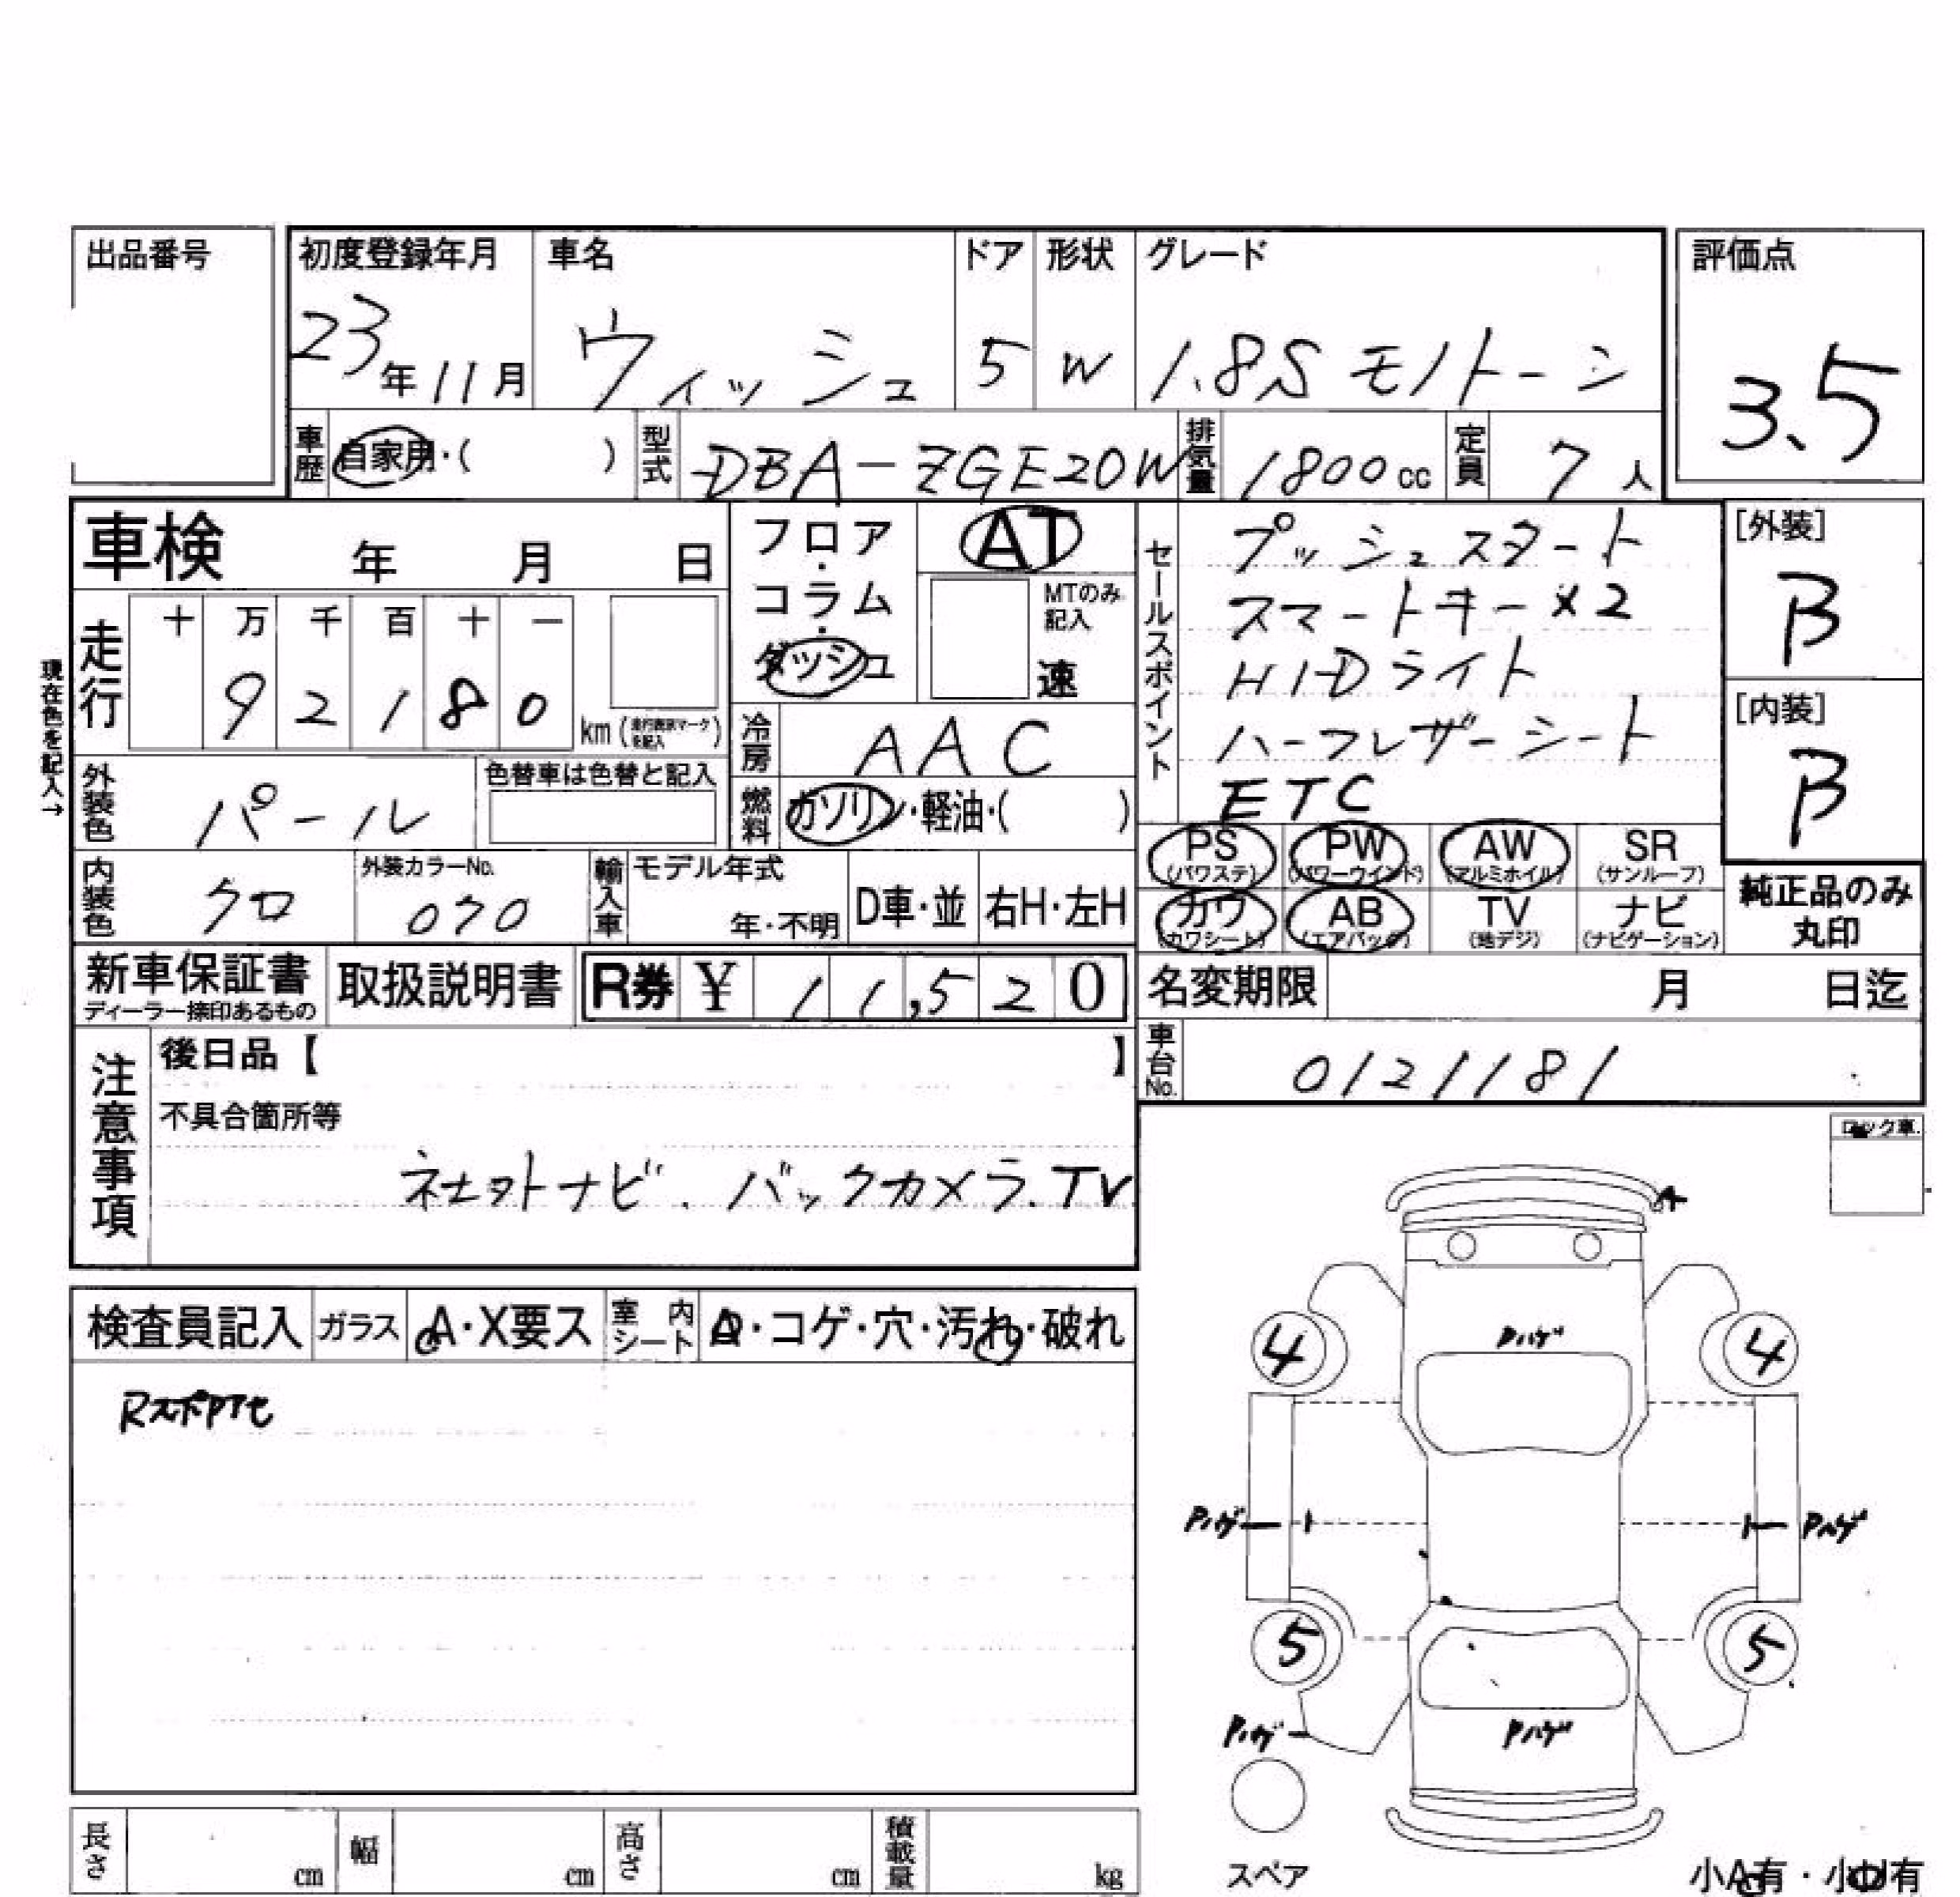 出品番号
初度登録年月 車名 ドア 形状 グレード 評価点
23年11月 ウィッシュ 5 W 1.8S モノトーン 3.5
車歴 自家用・( ) 型式 DBA-ZGE20W 排気量 1800cc 定員 7人
車検 年 月 日
フロア・コラム・ダッシュ AT
MTのみ記入 速
走行 十 万 千 百 十 一
9 2 1 8 0 km
現在色を記入→
冷房 AAC
外装色 パール 色替車は色替と記入
燃料 ガソリン・軽油・( )
内装色 クロ 外装カラーNo. 070
輸入車 モデル年式 年・不明 D車・並 右H・左H
セールスポイント
プッシュスタート
スマートキー×2
HIDライト
ハーフレザーシート
ETC
[外装]
B
[内装]
B
PS (パワステ) PW (パワーウインド) AW (アルミホイル) SR (サンルーフ)
カワ (カワシート) AB (エアバック) TV (地デジ) ナビ (ナビゲーション)
純正品のみ丸印
新車保証書 ディーラー捺印あるもの 取扱説明書 R券 ¥ 11,520
名変期限 月 日迄
車台No. 0121181
注意事項
後日品【 】
不具合箇所等
社外ナビ. バックカメラ. TV
ロック車
検査員記入 ガラス A・X要ス 室内シート A・コゲ・穴・汚れ・破れ
A
Pハゲ
4 4
Pハゲ Pハゲ
5 5
Pハゲ Pハゲ
スペア
小A有・小U有
長さ cm 幅 cm 高さ cm 積載量 kg